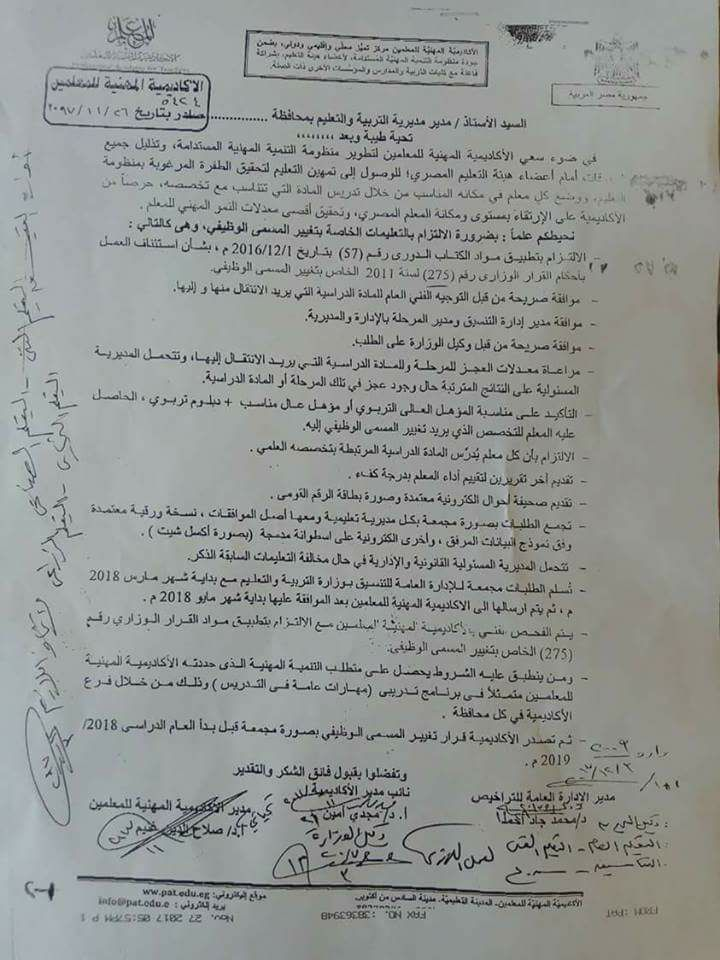 الأكاديمية المهنية للمعلمين مركز تميز محلي وإقليمي ودولي، يضمن
جودة منظومة التنمية المهنية المستدامة، لأعضاء هيئة التعليم، بشراكة
فاعلة مع كليات التربية والمدارس والمؤسسات الأخرى ذات الصلة.
جمهورية مصر العربية
الاكاديمية المهنية للمعلمين
٥٤٢٤
صادر بتاريخ
السيد الأستاذ / مدير مديرية التربية والتعليم بمحافظة ................
تحية طيبة وبعد ,,,,,,,,
في ضوء سعي الأكاديمية المهنية للمعلمين لتطوير منظومة التنمية المهنية المستدامة، وتذليل جميع
أمام أعضاء هيئة التعليم المصري؛ للوصول إلى تمهين التعليم لتحقيق الطفرة المرغوبة بمنظومة
التعليم، ووضع كل معلم في مكانه المناسب من خلال تدريس المادة التي تتناسب مع تخصصه، حرصاً من
الأكاديمية على الإرتقاء بمستوى ومكانة المعلم المصري، وتحقيق أقصى معدلات النمو المهني للمعلم .
نحيطكم علماً : بضرورة الالتزام بالتعليمات الخاصة بتغيير المسمى الوظيفي، وهى كالتالي :
- الالتزام بتطبيق مواد الكتاب الدورى رقم (57) بتاريخ 2016/12/1 م ، بشأن استئناف العمل
بأحكام القرار الوزارى رقم (275) لسنة 2011 الخاص بتغيير المسمى الوظيفي.
- موافقة صريحة من قبل التوجيه الفني العام للمادة الدراسية التي يريد الانتقال منها و إليها.
- موافقة مدير إدارة التنسيق ومدير المرحلة بالإدارة والمديرية.
- موافقة صريحة من قبل وكيل الوزارة على الطلب.
- مراعاة معدلات العجز للمرحلة وللمادة الدراسية التي يريد الانتقال إليها، وتتحمل المديرية
المسئولية على النتائج المترتبة حال وجود عجز في تلك المرحلة أو المادة الدراسية.
- التأكيد على مناسبة المؤهل العالى التربوي أو مؤهل عال مناسب + دبلوم تربوي ، الحاصل
عليه المعلم للتخصص الذي يريد تغيير المسمى الوظيفي إليه.
- الالتزام بأن كل معلم يُدرّس المادة الدراسية المرتبطة بتخصصه العلمي .
- تقديم أخر تقريرين لتقييم أداء المعلم بدرجة كفء .
- تقديم صحيفة أحوال الكترونية معتمدة وصورة بطاقة الرقم القومى .
- تجمع الطلبات بصورة مجمعة بكل مديرية تعليمية ومعها أصل الموافقات ، نسخة ورقية معتمدة
وفق نموذج البيانات المرفق ، وأخرى الكترونية على اسطوانة مدمجة (بصورة أكسل شيت ) .
- تتحمل المديرية المسئولية القانونية والإدارية في حال مخالفة التعليمات السابقة الذكر.
- تُسلم الطلبات مجمعة للإدارة العامة للتنسيق بوزارة التربية والتعليم مع بداية شهر مارس 2018
م ، ثم يتم ارسالها الى الاكاديمية المهنية للمعلمين بعد الموافقة عليها بداية شهر مايو 2018 م .
- يتم الفحص الفني بالأكاديمية المهنية للمعلمين مع الالتزام بتطبيق مواد القرار الوزاري رقم
(275) الخاص بتغيير المسمى الوظيفى.
- ومن ينطبق عليه الشروط يحصل على متطلب التنمية المهنية الذى حددته الأكاديمية المهنية
للمعلمين متمثلاً فى برنامج تدريبي (مهارات عامة فى التدريس) وذلك من خلال فرع
الأكاديمية في كل محافظة .
- ثم تصدر الأكاديمية قرار تغيير المسمى الوظيفي بصورة مجمعة قبل بدأ العام الدراسى 2018/
2019 م .
وتفضلوا بقبول فائق الشكر والتقدير
مدير الإدارة العامة للتراخيص
نائب مدير الأكاديمية
مدير الأكاديمية المهنية للمعلمين
د/محمد جاد
أ.د/ مجدي أمين
أ.د/ صلاح الدين غنيم
وكيل الوزارة
الأكاديمية المهنية للمعلمين، المدينة التعليمية، مدينة السادس من أكتوبر.
موقع إليكتروني: www.pat.edu.eg
بريد إليكتروني : info@pat.edu.e
FROM :PAT
FAX NO. :38363948
Nov. 27 2017 05:57PM P 1